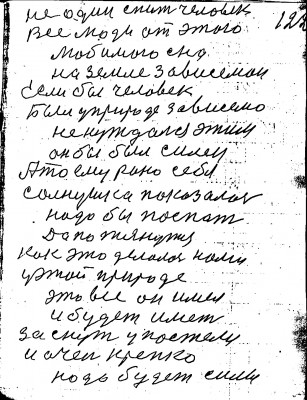 не один спит человек 122
Все люди от этого
любимого сна
на земле зависемаи
Если бы человек
были уприроде зависемо
ненуждался этим
он бы был силен
А то ему рано себя
солнушка показалас
надо бы поспат
да потянутся
как это делалас нами
уэтой природе
это все он имел
и будет имет
заснут упостели
и очен крепко
надо будет силы